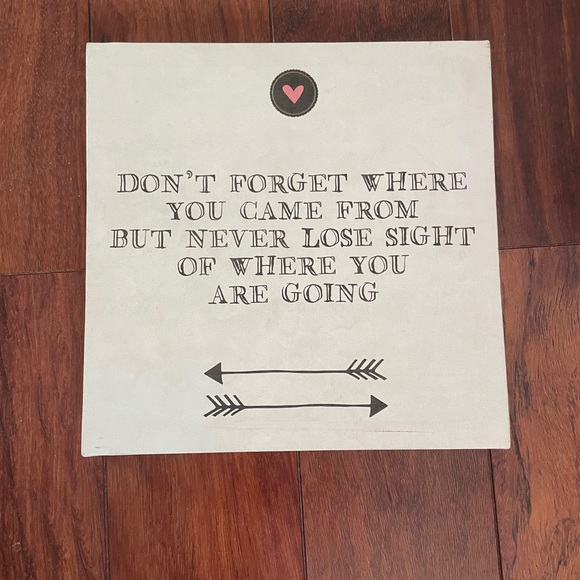 DON'T FORGET WHERE
YOU CAME FROM
BUT NEVER LOSE SIGHT
OF WHERE YOU
ARE GOING